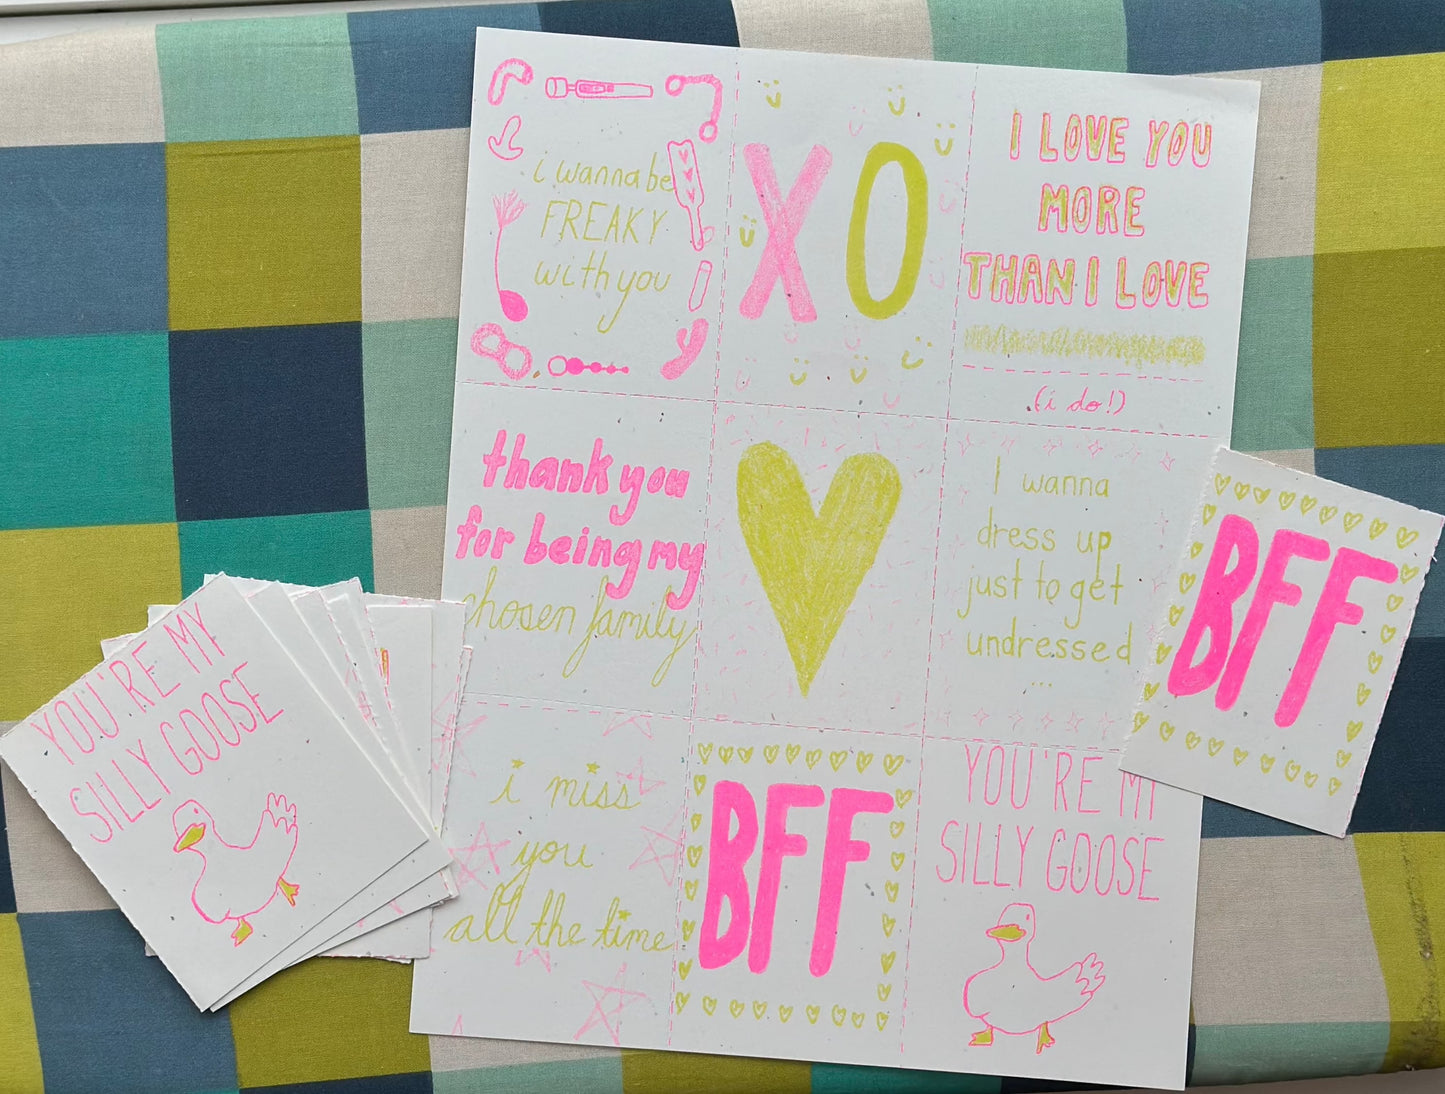 i wanna be
FREAKY
with you
XO
I LOVE YOU
MORE
THAN I LOVE
(i do!)
thank you
for being my
chosen family
I wanna
dress up
just to get
undressed
...
i miss
you
all the time
BFF
YOU'RE MY
SILLY GOOSE
BFF
YOU'RE MY
SILLY GOOSE